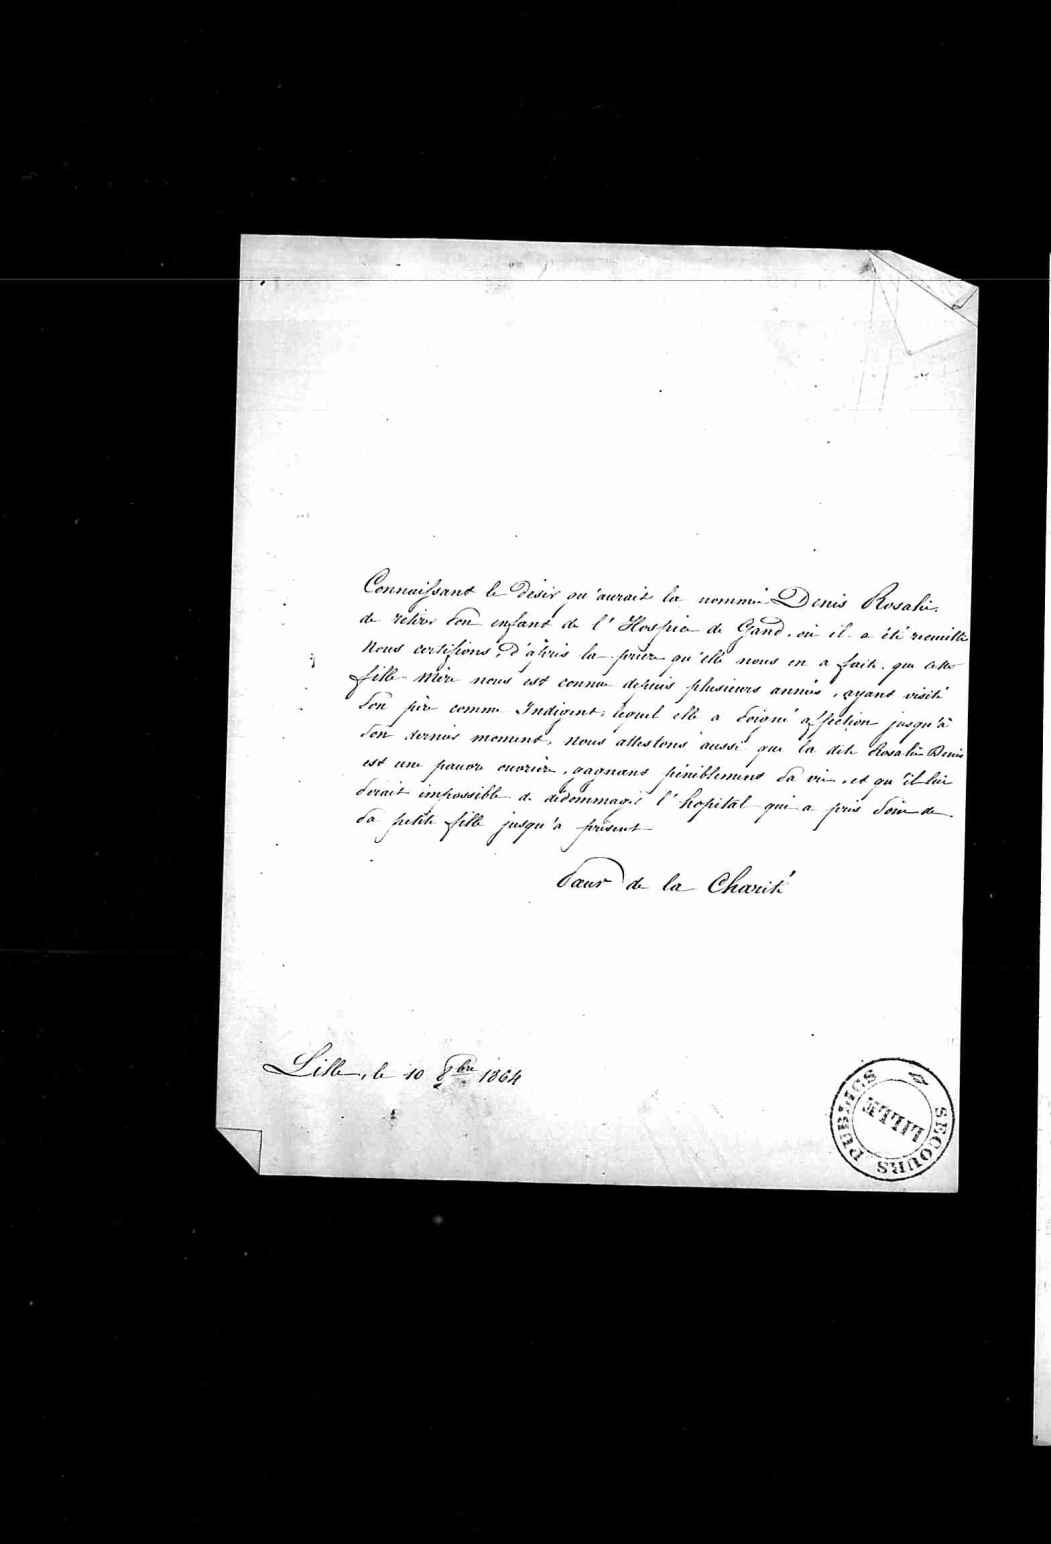 Connaissant le désir qu'aurait la nommée Denis Rosalie,
de retirer son enfant de l'Hospice de Gand, où il a été recueilli
Nous certifions, d'après la prière qu'elle nous en a faite, que cette
fille mère nous est connue depuis plusieurs années, ayant visité
son père comme Indigent, lequel elle a soigné affection jusqu'à
son dernier moment, nous attestons aussi que la dite Rosalie Denis
est une pauvre ouvrière, gagnant péniblement sa vie, et qu'il lui
serait impossible de dédommager l'hopital qui a pris soin de
sa petite fille jusqu'à présent
Sœur de la Charité
Lille, le 10 8bre 1864
SECOURS PUBLICS
LILLE